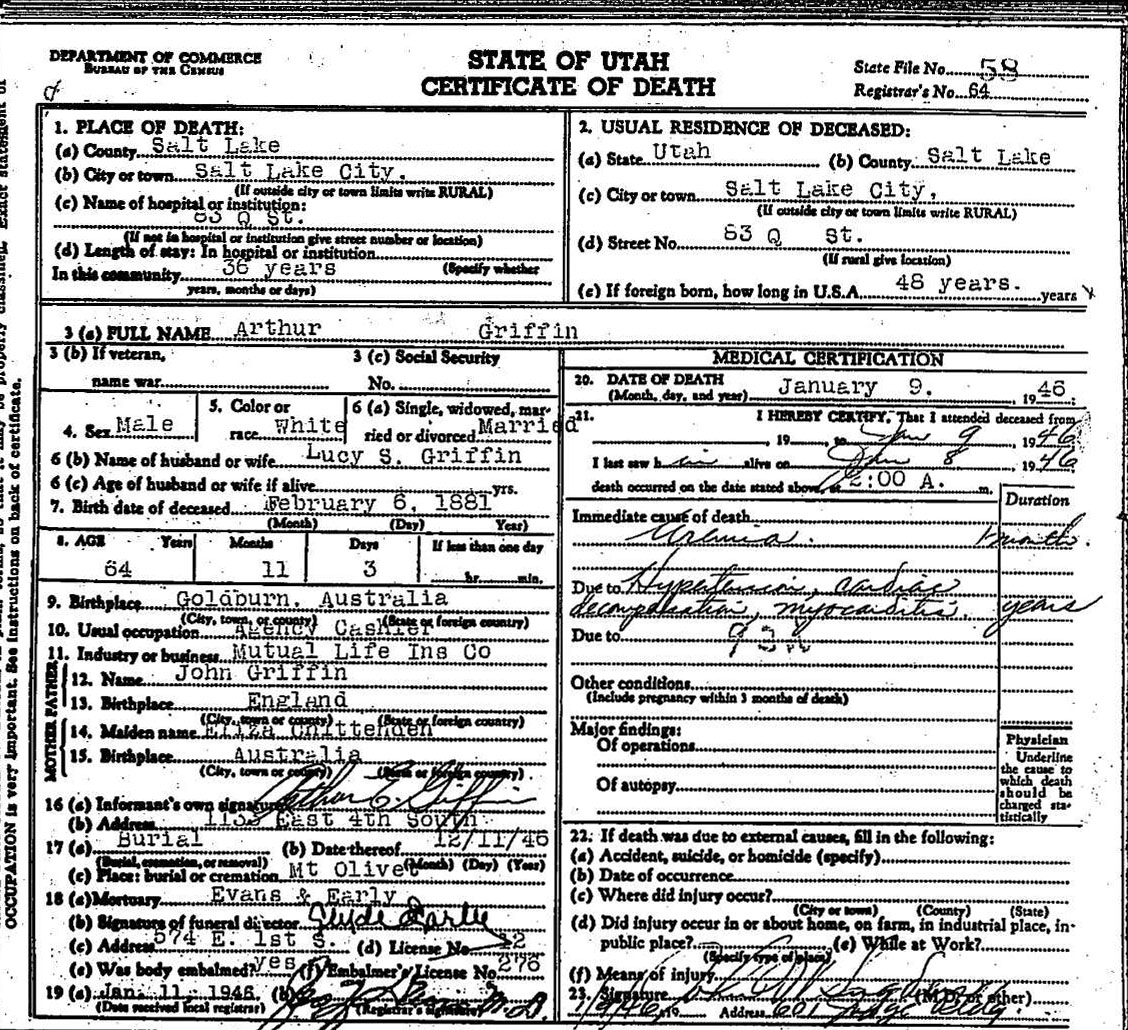 DEPARTMENT OF COMMERCE
BUREAU OF THE CENSUS
STATE OF UTAH
CERTIFICATE OF DEATH
State File No. 58
Registrar's No. 64
1. PLACE OF DEATH:
(a) County Salt Lake
(b) City or town Salt Lake City.
(If outside city or town limits write RURAL)
(c) Name of hospital or institution:
83 Q St.
(If not in hospital or institution give street number or location)
(d) Length of stay: In hospital or institution
In this community 36 years (Specify whether
years, months or days)
2. USUAL RESIDENCE OF DECEASED:
(a) State Utah (b) County Salt Lake
(c) City or town Salt Lake City,
(If outside city or town limits write RURAL)
(d) Street No. 83 Q St.
(If rural give location)
(e) If foreign born, how long in U.S.A. 48 years. years
3 (a) FULL NAME Arthur Griffin
3 (b) If veteran,
name war
3 (c) Social Security
No.
4. Sex Male
5. Color or
race White
6 (a) Single, widowed, mar-
ried or divorced Married
6 (b) Name of husband or wife Lucy S. Griffin
6 (c) Age of husband or wife if alive yrs.
7. Birth date of deceased February 6, 1881
(Month) (Day) Year)
8. AGE Years Months Days If less than one day
64 11 3 hr. min.
9. Birthplace Goldburn, Australia
(City, town, or county) (State or foreign country)
10. Usual occupation Agency Cashier
11. Industry or business Mutual Life Ins Co
FATHER
12. Name John Griffin
13. Birthplace England
(City, town or county) (State or foreign country)
MOTHER
14. Maiden name Eliza Chittenden
15. Birthplace Australia
(City, town or county) (State or foreign country)
16 (a) Informant's own signature Arthur E. Griffin
(b) Address 1133 East 4th South
17 (a) Burial (b) Date thereof 12/11/46
(Burial, cremation, or removal) (Month) (Day) (Year)
(c) Place: burial or cremation Mt Olivet
18 (a) Mortuary Evans & Early
(b) Signature of funeral director Clyde Earle
(c) Address 574 E. 1st S. (d) License No.
(e) Was body embalmed? yes (f) Embalmer's License No. 276
19 (a) Jan. 11, 1946, (b)
(Date received local registrar) (Registrar's signature)
MEDICAL CERTIFICATION
20. DATE OF DEATH January 9. , 1946;
(Month, day, and year)
21. I HEREBY CERTIFY, That I attended deceased from
, 19 , to Jan 9 , 1946
I last saw him alive on Jan 8 , 1946
death occurred on the date stated above, at 2:00 A. m.
Duration
Immediate cause of death
Uremia. 1 month.
Due to Hypertension, cardiac
decompensation, myocarditis. years
Due to
Other conditions
(Include pregnancy within 3 months of death)
Major findings:
Of operations
Of autopsy
Physician
Underline
the cause to
which death
should be
charged sta-
tistically
22. If death was due to external causes, fill in the following:
(a) Accident, suicide, or homicide (specify)
(b) Date of occurrence
(c) Where did injury occur?
(City or town) (County) (State)
(d) Did injury occur in or about home, on farm, in industrial place, in
public place? (e) While at Work?
(Specify type of place)
(f) Means of injury
23. Signature (M.D. or other)
Address 601 Judge Bldg.
OCCUPATION is very important. See instructions on back of certificate.